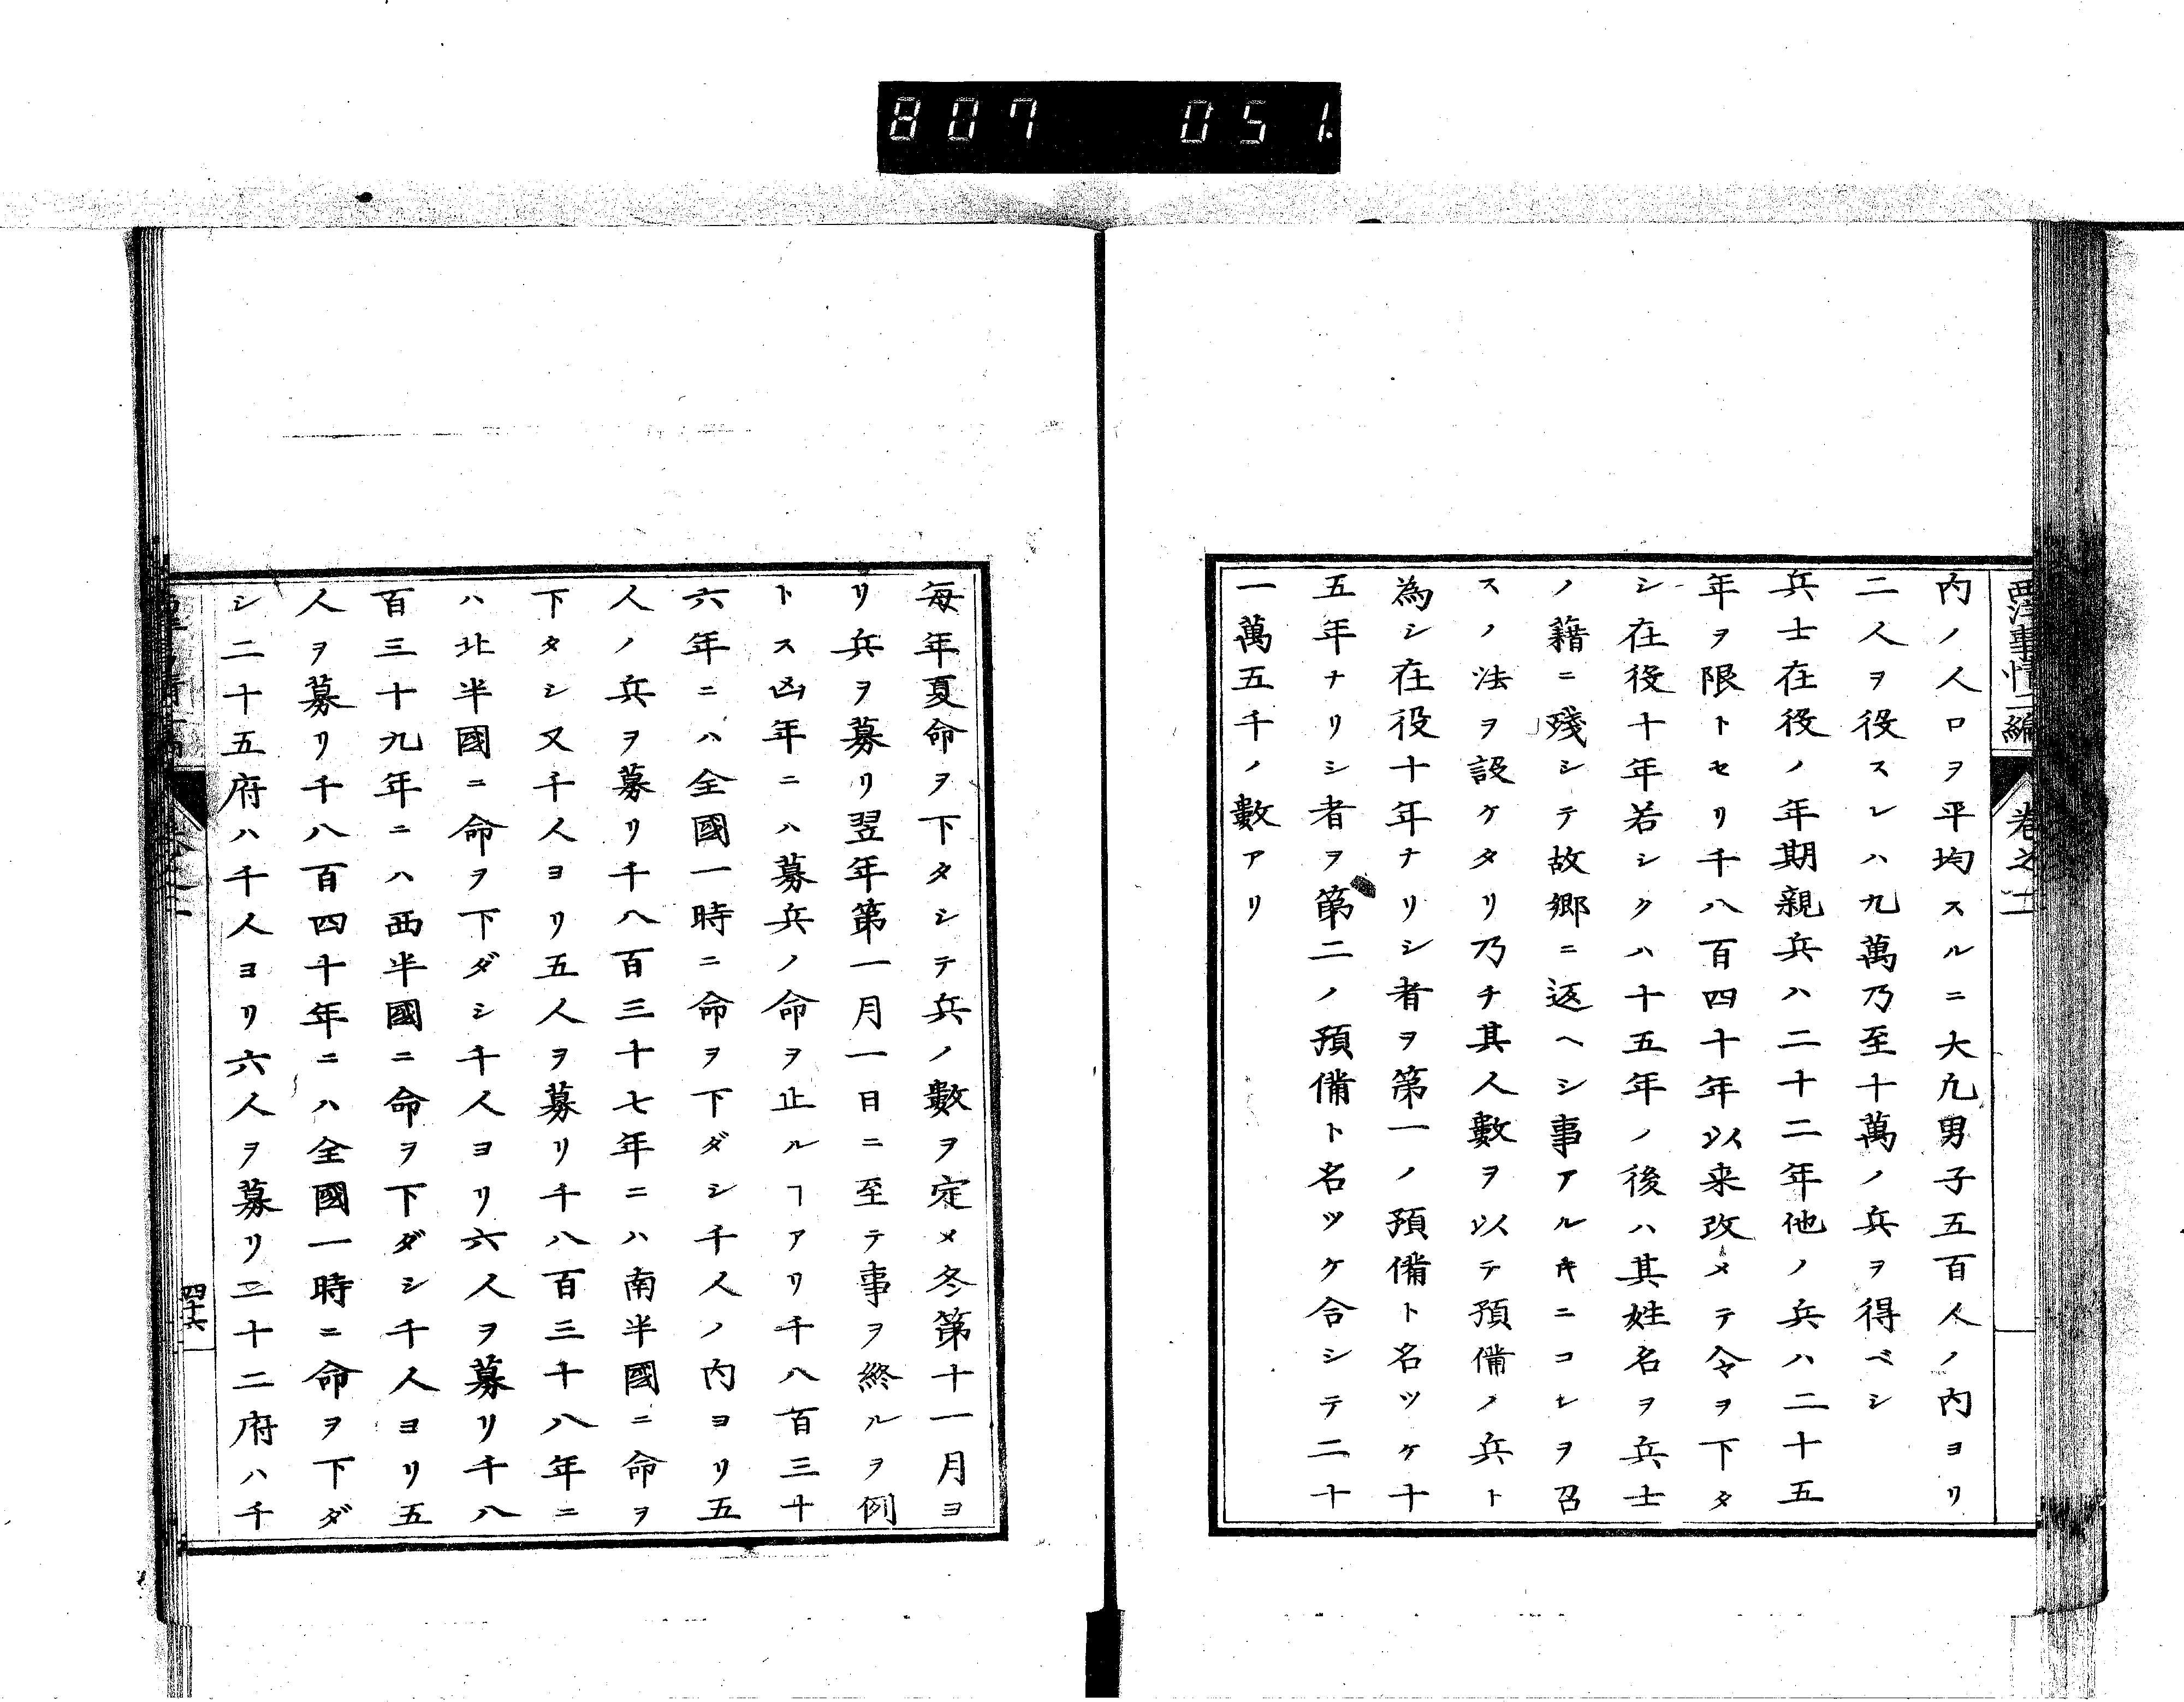 807 051
西洋事情二編 卷之二
内ノ人口ヲ平均スルニ大凡男子五百人ノ内ヨリ
二人ヲ役スレハ九萬乃至十萬ノ兵ヲ得ベシ
兵士在役ノ年期親兵ハ二十二年他ノ兵ハ二十五
年ヲ限トセリ千八百四十年以来改メテ令ヲ下タ
シ在役十年若シクハ十五年ノ後ハ其姓名ヲ兵士
ノ籍ニ殘シテ故郷ニ返ヘシ事アルキニコレヲ召
スノ法ヲ設ケタリ乃チ其人數ヲ以テ預備ノ兵ト
為シ在役十年ナリシ者ヲ第一ノ預備ト名ツケ十
五年ナリシ者ヲ第二ノ預備ト名ツケ合シテ二十
一萬五千ノ數アリ
毎年夏命ヲ下タシテ兵ノ數ヲ定メ冬第十一月ヨ
リ兵ヲ募リ翌年第一月一日ニ至テ事ヲ終ルヲ例
トス凶年ニハ募兵ノ命ヲ止ルヿアリ千八百三十
六年ニハ全國一時ニ命ヲ下ダシ千人ノ内ヨリ五
人ノ兵ヲ募リ千八百三十七年ニハ南半國ニ命ヲ
下タシ又千人ヨリ五人ヲ募リ千八百三十八年ニ
ハ北半國ニ命ヲ下ダシ千人ヨリ六人ヲ募リ千八
百三十九年ニハ西半國ニ命ヲ下ダシ千人ヨリ五
人ヲ募リ千八百四十年ニハ全國一時ニ命ヲ下ダ
シ二十五府ハ千人ヨリ六人ヲ募リ二十二府ハ千
四十六